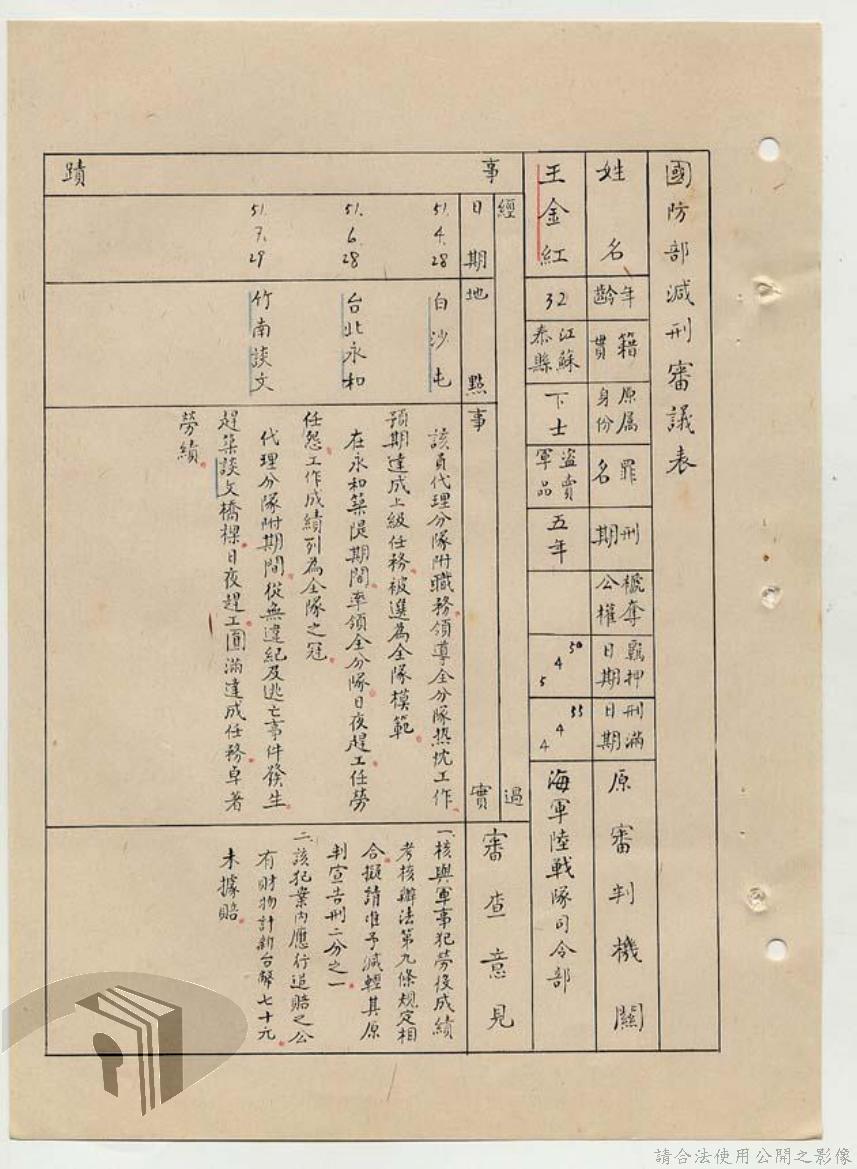 國防部減刑審議表
姓名
年齡
籍貫
原屬身份
罪名
刑期
褫奪公權
羈押日期
刑滿日期
原審判機關
王金紅
32
江蘇泰縣
下士
盜賣軍品
五年
50 4 5
55 4 4
海軍陸戰隊司令部
事蹟
經過
日期
地點
事實
審查意見
51. 4. 28
白沙屯
該員代理分隊附職務領導全分隊熱忱工作
預期達成上級任務被選為全隊模範
51. 6. 28
台北永和
在永和築隄期間率領全分隊日夜趕工任勞
任怨工作成績列為全隊之冠
51. 7. 29
竹南談文
代理分隊附期間從無違紀及逃亡事件發生
趕築談文橋樑日夜趕工圓滿達成任務卓著
勞績
一、核與軍事犯勞役成績
考核辦法第九條規定相
合擬請准予減輕其原
判宣告刑二分之一
二、該犯案內應行追賠之公
有財物計新台幣七十元
未據賠
請合法使用公開之影像